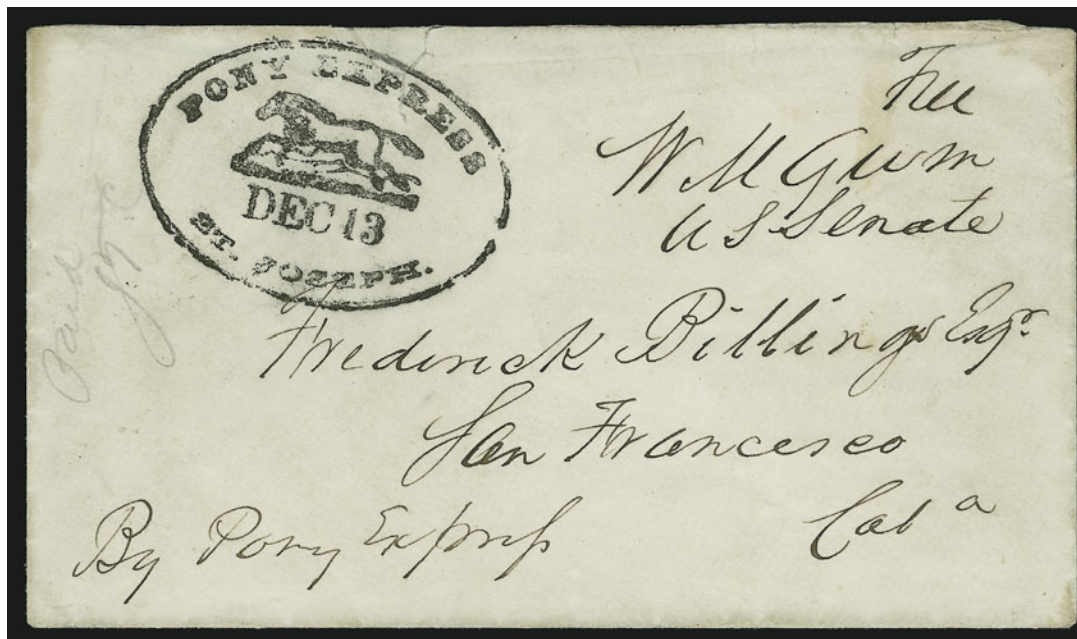 PONY EXPRESS
DEC 13
ST. JOSEPH.
Free
W M Gwin
U S Senate
Frederick Billings Esqr.
San Francesco
Cal a
By Pony Express
Paid